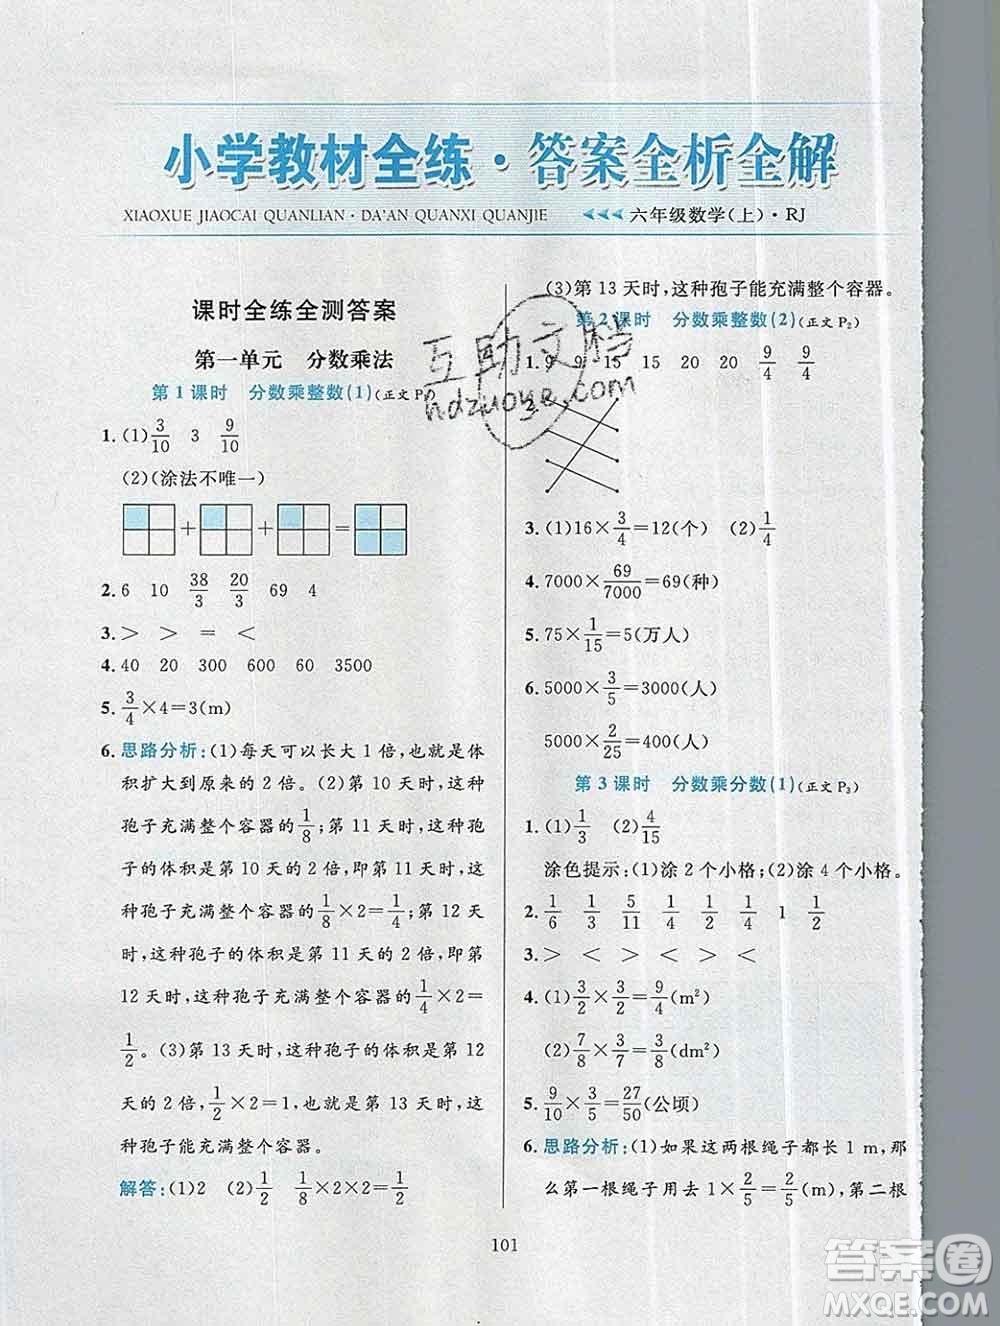 小学教材全练·答案全析全解
XIAOXUE JIAOCAI QUANLIAN·DA'AN QUANXI QUANJIE
六年级数学(上)·RJ
课时全练全测答案
第一单元　分数乘法
第1课时　分数乘整数(1)(正文P
1. (1)3/10　3　9/10
(2)(涂法不唯一)
+ + =
2. 6　10　38/3　20/3　69　4
3. >　>　=　<
4. 40　20　300　600　60　3500
5. 3/4×4=3(m)
6. 思路分析:(1)每天可以长大 1 倍,也就是体
积扩大到原来的 2 倍。(2)第 10 天时,这种
孢子充满整个容器的1/8;第 11 天时,这种孢
子的体积是第 10 天的 2 倍,即第 11 天时,
这种孢子充满整个容器的1/8×2=1/4;第 12 天
时,这种孢子的体积是第 11 天的 2 倍,即第
12 天时,这种孢子充满整个容器的1/4×2=
1/2。(3)第 13 天时,这种孢子的体积是第 12
天的 2 倍,1/2×2=1,也就是第 13 天时,这种
孢子能充满整个容器。
解答:(1)2　(2)1/2　1/8×2×2=1/2
(3)第 13 天时,这种孢子能充满整个容器。
第2课时　分数乘整数(2)(正文P2)
1. 9　9　15　15　20　20　9/4　9/4
2.
3. (1)16×3/4=12(个)　(2)1/4
4. 7000×69/7000=69(种)
5. 75×1/15=5(万人)
6. 5000×3/5=3000(人)
5000×2/25=400(人)
第3课时　分数乘分数(1)(正文P3)
1. (1)1/3　(2)4/15
涂色提示:(1)涂 2 个小格;(2)涂 4 个小格。
2. 1/6　1/3　5/11　1/4　1/4　1/4　1　1/2
3. >　<　<　<　>　>
4. (1)3/2×3/2=9/4(m²)
(2)7/8×3/7=3/8(dm²)
5. 9/10×3/5=27/50(公顷)
6. 思路分析:(1)如果这两根绳子都长 1 m,那
么第一根绳子用去 1×2/5=2/5(m),第二根
101
互助文档
hdzuoye.com
答案圈
MXQE.COM